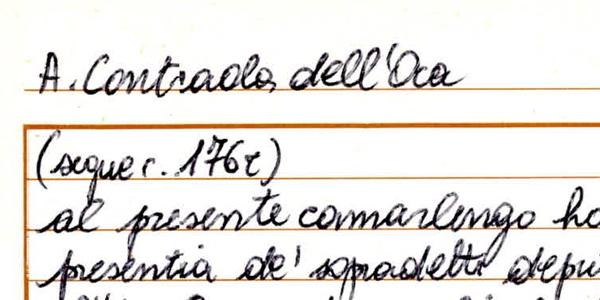 A. Contrada dell'Oca
(segue c. 176r)
al presente camarlengo
presentia de' sopradetti